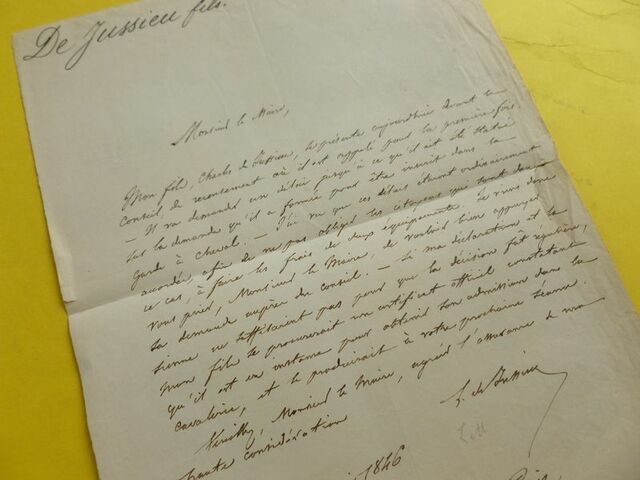 De Jussieu fils.
Monsieur le Maire,
Mon fils, Charles de Jussieu, se présente aujourd'hui devant le
Conseil de recensement où il est appelé pour la première fois.
— Il va demander un délai jusqu'à ce qu'il ait été statué
sur la demande qu'il a formée pour être inscrit dans la
garde à cheval. — J'ai vu que ces délais étaient ordinairement
accordés, afin de ne pas obliger les citoyens qui sont dans
ce cas, à faire les frais de deux équipements. Je viens donc
vous prier, Monsieur le Maire, de vouloir bien appuyer
sa demande auprès du conseil. — Si ma déclaration et la
sienne ne suffisaient pas pour que la décision fût régulière,
mon fils se procurerait un certificat officiel constatant
qu'il est en instance pour obtenir son admission dans la
cavalerie, et le produirait à votre prochaine séance.
Veuillez, Monsieur le Maire, agréer l'assurance de ma
haute considération
de Jussieu
1846